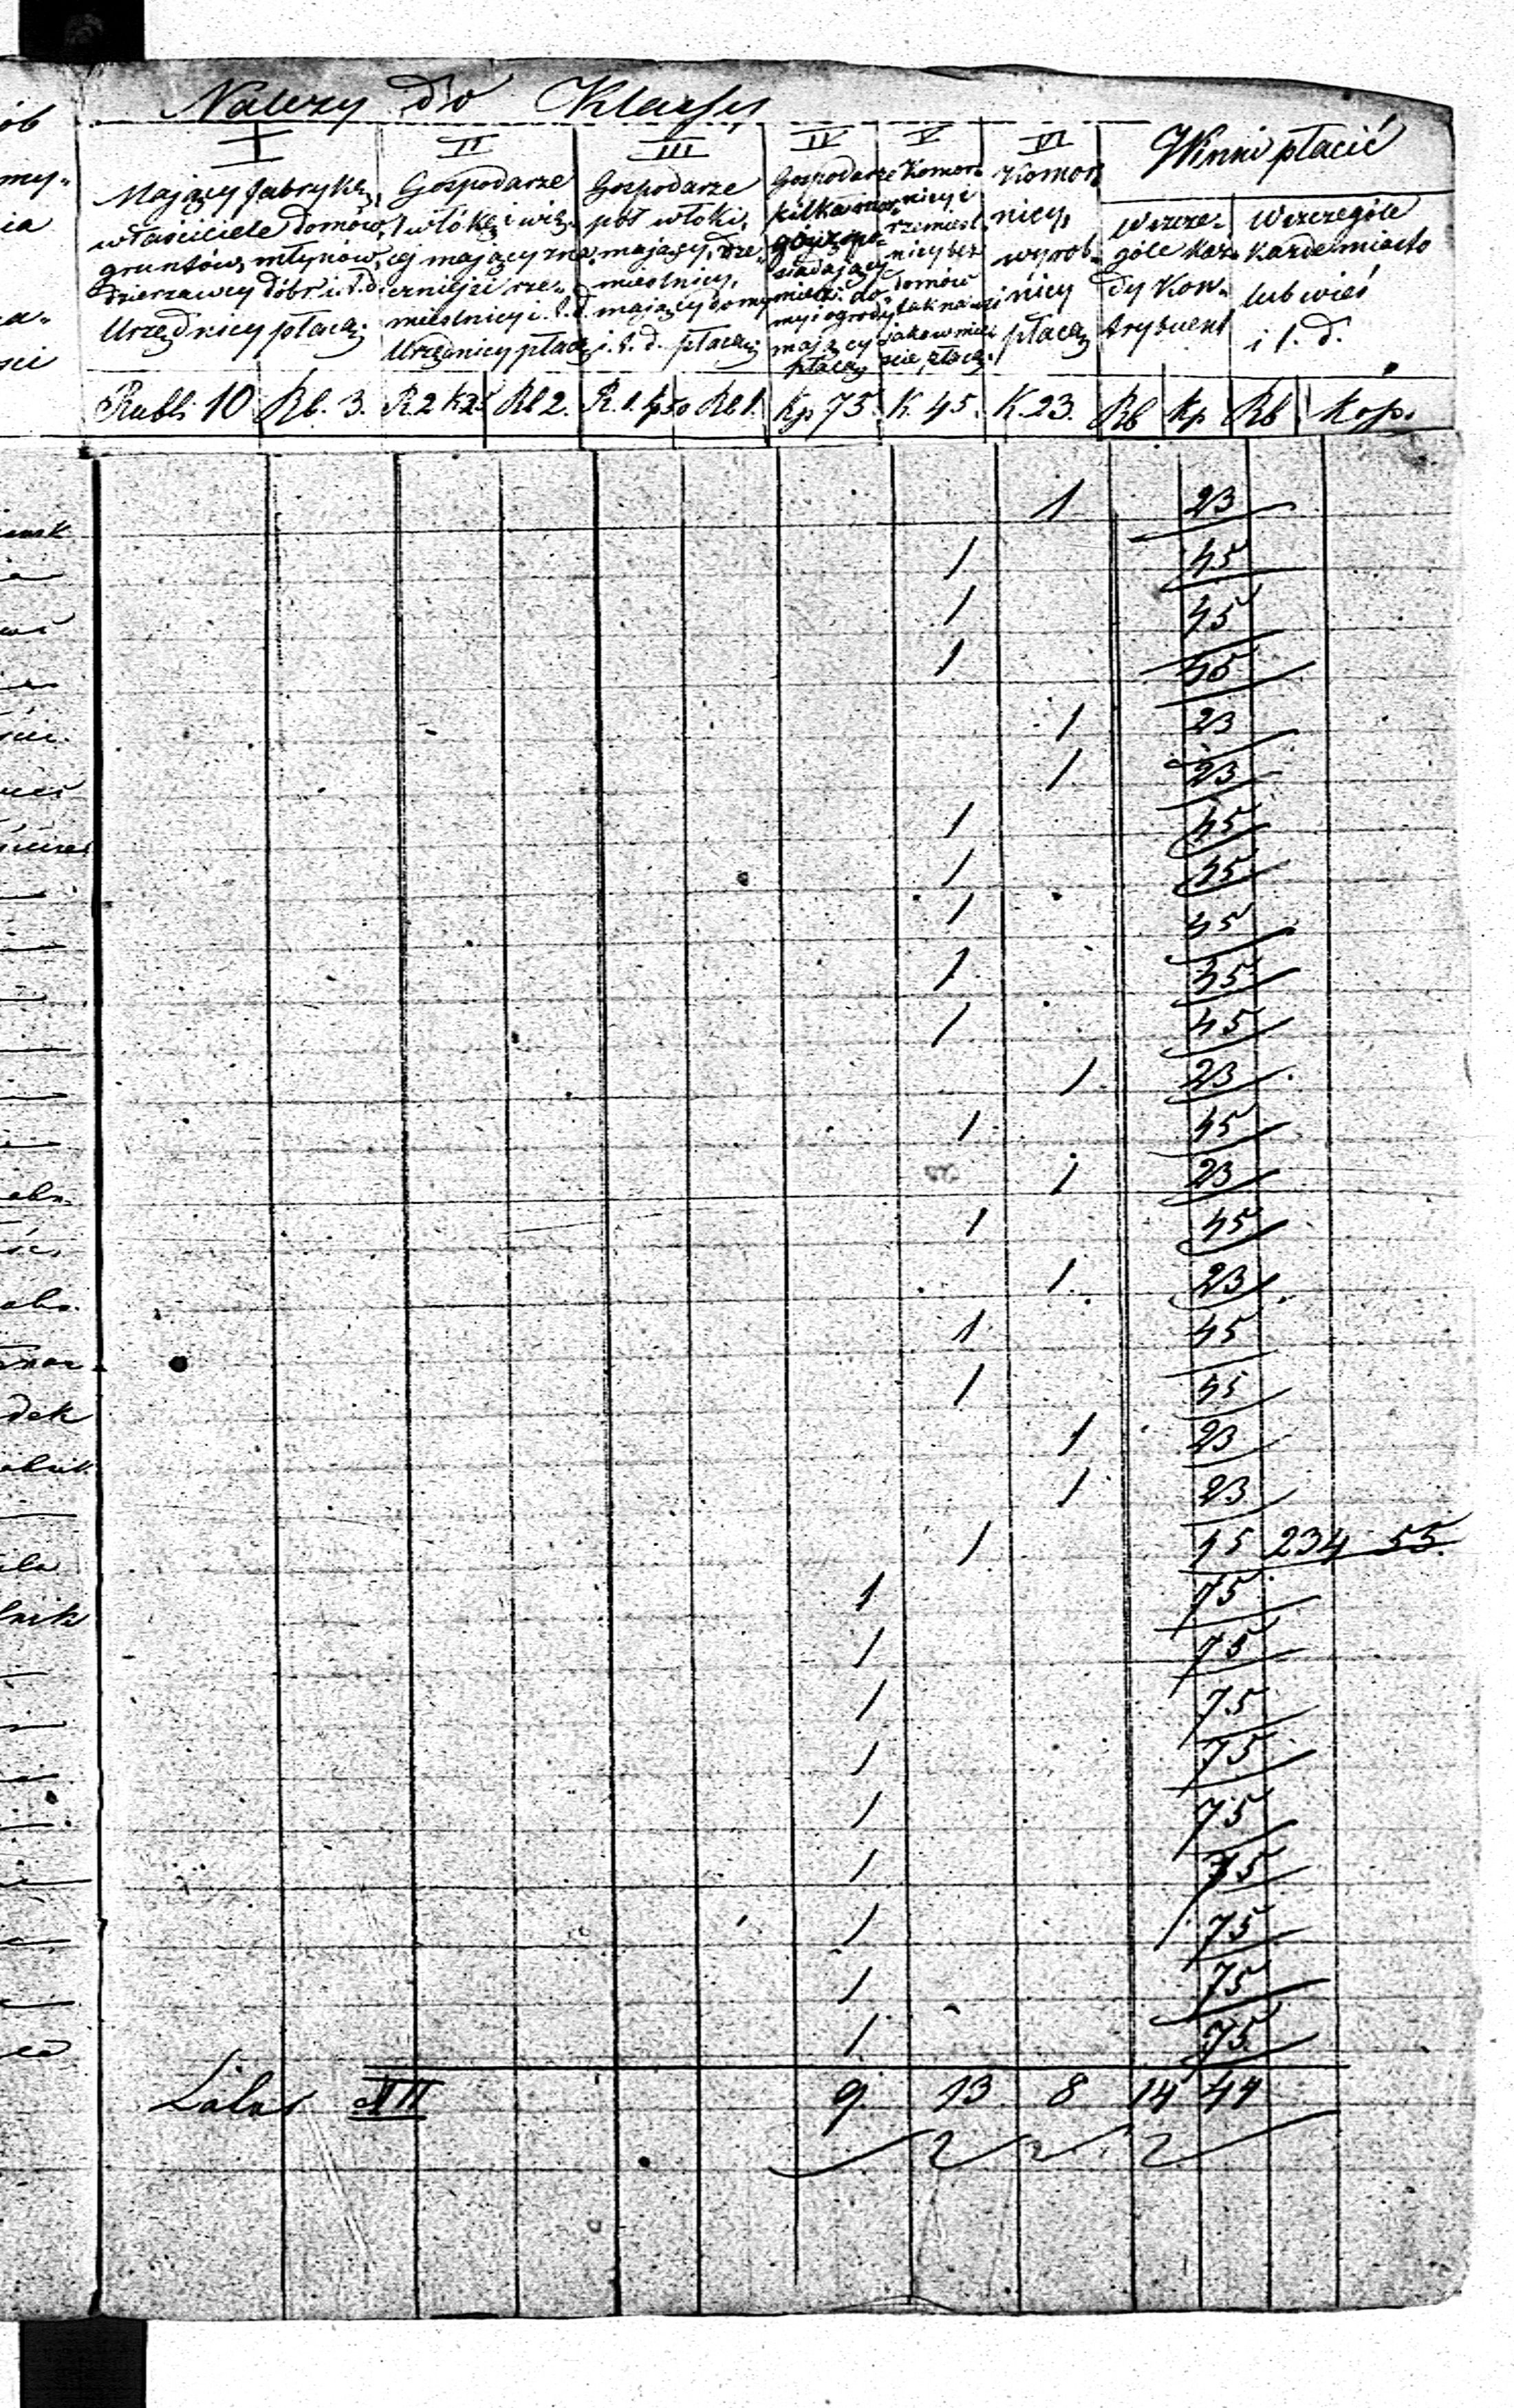 Należy do Klassy
I II III IV V VI Winni płacić
Mający fabrykę,
właściciele domów,
gruntów, młynów,
dzierzawcy dóbr i. t. d.
Urzędnicy płacą.
Gospodarze
1 włókę i wię-
cej mający zna-
czniejsi rze-
mieślnicy i. t. d.
Urzędnicy płacą
Gospodarze
pół włóki,
mający, rze-
mieślnicy,
mający domy
i. t. d. płacą.
Gospodarze
kilka mor-
gów po-
siadający
mieszk. do-
my i ogrody
mający
płacą
Komor-
nicy i
rzemieśl-
nicy bez
domów
płacą.
Komor-
nicy,
wyrob-
nicy
płacą
Wszcze-
góle każ-
dy Kon-
trybuent
Wszczególe
każde miasto
lub wieś
i t. d.
Rubli 10 Rb. 3. R. 2 K 25 Rb 2. R. 1. kp 50 Rb 1. Kp 75. K. 45. K. 23. Rb Kp Rb Kop.
ób
my-
ia
a-
ści
1 23
1 45
1 45
1 45
1 23
1 23
1 45
1 45
1 45
1 45
1 45
1 23
1 45
1 23
1 45
1 23
1 45
1 45
1 23
1 23
1 45 234 55.
1 75
1 75
1 75
1 75
1 75
1 75
1 75
1 75
1 75
Latus 9. 13 8 14 44